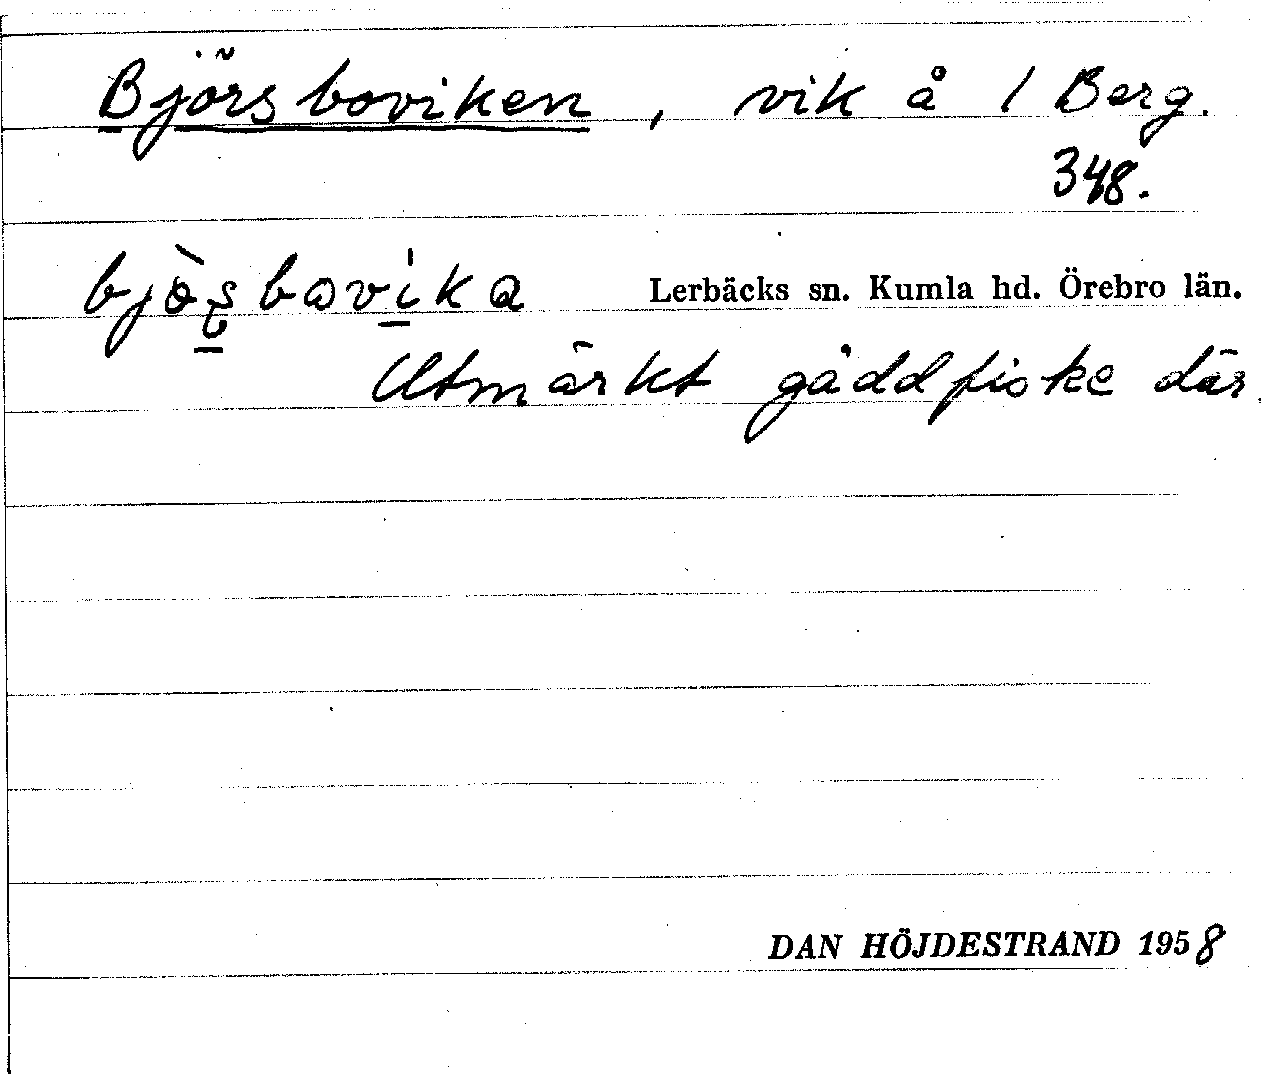 Björsboviken, vik å 1 Berg.
348.
bjò̱ʂbavi̱ka Lerbäcks sn. Kumla hd. Örebro län.
Utmärkt gäddfiske där.
DAN HÖJDESTRAND 1958